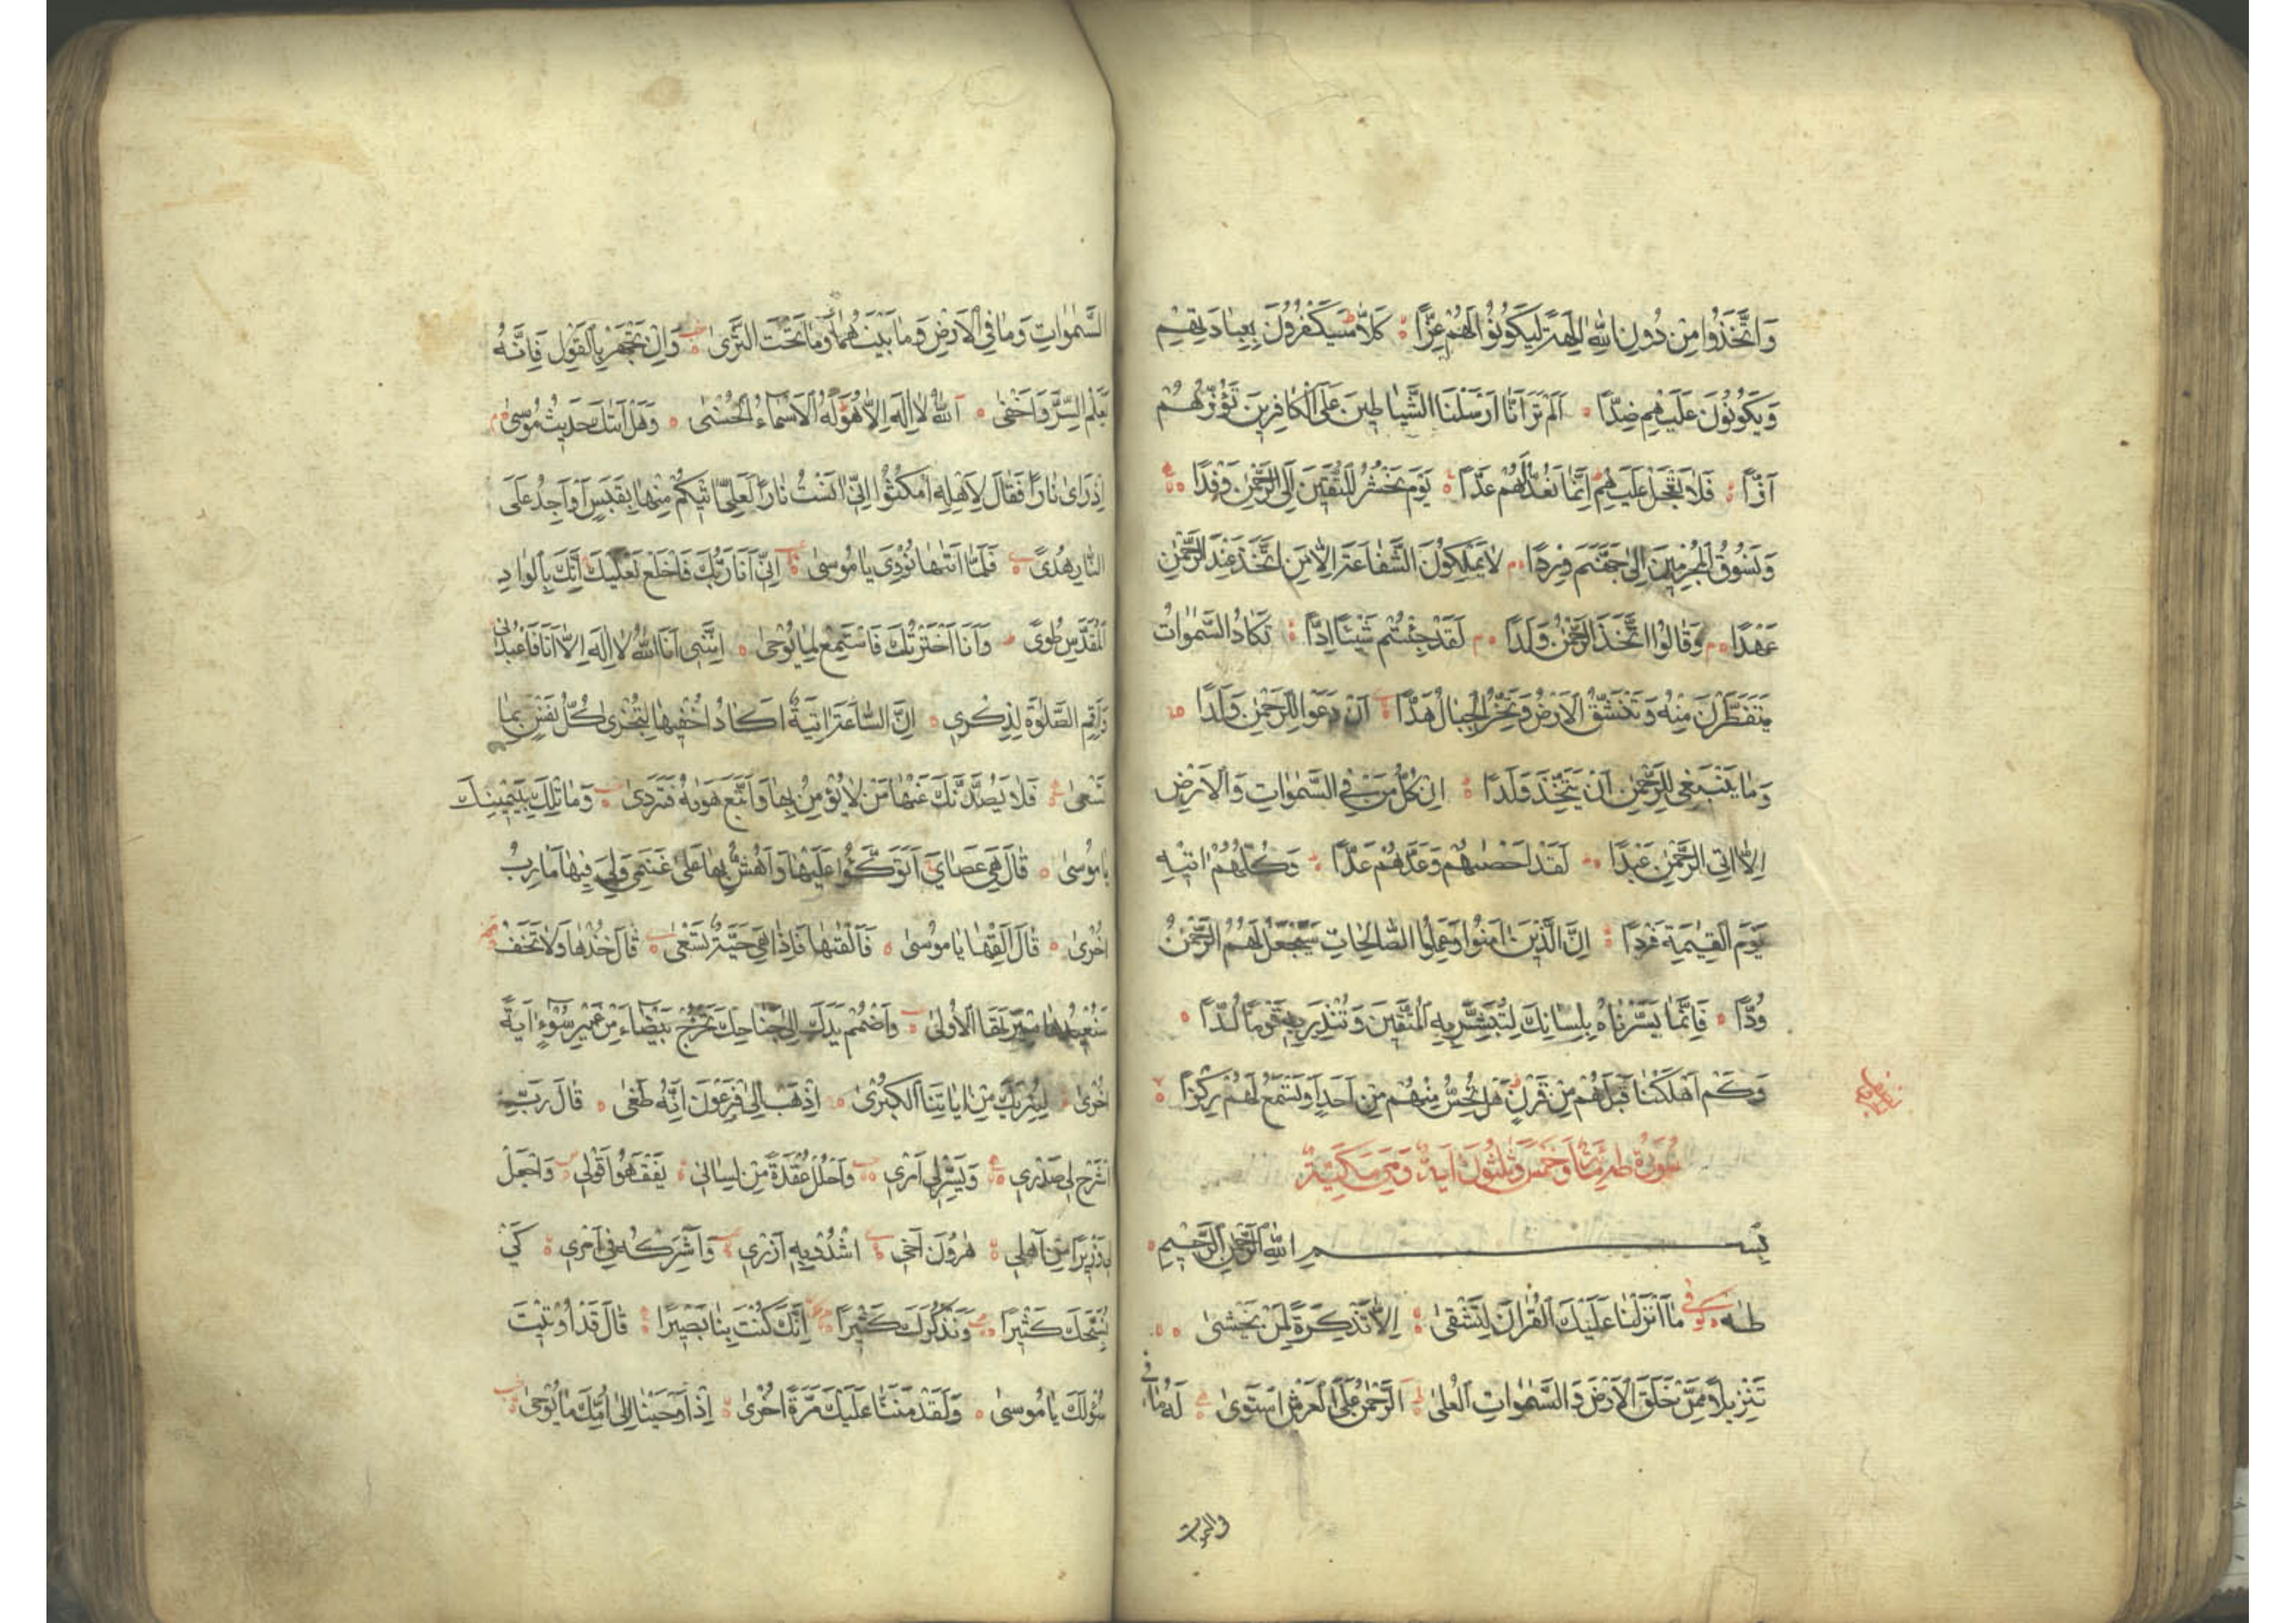 وَاتَّخَذُوا مِنْ دُونِ اللّٰهِ اٰلِهَةً لِيَكُونُوا لَهُمْ عِزًّا كَلَّا سَيَكْفُرُونَ بِعِبَادَتِهِمْ
وَيَكُونُونَ عَلَيْهِمْ ضِدًّا اَلَمْ تَرَ اَنَّا اَرْسَلْنَا الشَّيَاطِينَ عَلَى الْكَافِرِينَ تَؤُزُّهُمْ
اَزًّا فَلَا تَعْجَلْ عَلَيْهِمْ اِنَّمَا نَعُدُّ لَهُمْ عَدًّا يَوْمَ نَحْشُرُ الْمُتَّقِينَ اِلَى الرَّحْمٰنِ وَفْدًا
وَنَسُوقُ الْمُجْرِمِينَ اِلٰى جَهَنَّمَ وِرْدًا لَا يَمْلِكُونَ الشَّفَاعَةَ اِلَّا مَنِ اتَّخَذَ عِنْدَ الرَّحْمٰنِ
عَهْدًا وَقَالُوا اتَّخَذَ الرَّحْمٰنُ وَلَدًا لَقَدْ جِئْتُمْ شَيْئًا اِدًّا تَكَادُ السَّمٰوَاتُ
يَتَفَطَّرْنَ مِنْهُ وَتَنْشَقُّ الْاَرْضُ وَتَخِرُّ الْجِبَالُ هَدًّا اَنْ دَعَوْا لِلرَّحْمٰنِ وَلَدًا
وَمَا يَنْبَغِي لِلرَّحْمٰنِ اَنْ يَتَّخِذَ وَلَدًا اِنْ كُلُّ مَنْ فِي السَّمٰوَاتِ وَالْاَرْضِ
اِلَّا اٰتِي الرَّحْمٰنِ عَبْدًا لَقَدْ اَحْصٰيهُمْ وَعَدَّهُمْ عَدًّا وَكُلُّهُمْ اٰتِيهِ
يَوْمَ الْقِيٰمَةِ فَرْدًا اِنَّ الَّذِينَ اٰمَنُوا وَعَمِلُوا الصَّالِحَاتِ سَيَجْعَلُ لَهُمُ الرَّحْمٰنُ
وُدًّا فَاِنَّمَا يَسَّرْنَاهُ بِلِسَانِكَ لِتُبَشِّرَ بِهِ الْمُتَّقِينَ وَتُنْذِرَ بِهِ قَوْمًا لُدًّا
وَكَمْ اَهْلَكْنَا قَبْلَهُمْ مِنْ قَرْنٍ هَلْ تُحِسُّ مِنْهُمْ مِنْ اَحَدٍ اَوْ تَسْمَعُ لَهُمْ رِكْزًا
سُورَةُ طٰهٰ مِائَةٌ وَخَمْسٌ وَثَلٰثُونَ اٰيَةً وَهِيَ مَكِّيَّةٌ
بِسْمِ اللّٰهِ الرَّحْمٰنِ الرَّحِيمِ
طٰهٰ مَا اَنْزَلْنَا عَلَيْكَ الْقُرْاٰنَ لِتَشْقٰى اِلَّا تَذْكِرَةً لِمَنْ يَخْشٰى
تَنْزِيلًا مِمَّنْ خَلَقَ الْاَرْضَ وَالسَّمٰوَاتِ الْعُلٰى اَلرَّحْمٰنُ عَلَى الْعَرْشِ اسْتَوٰى لَهُ مَا فِي
السَّمٰوَاتِ وَمَا فِي الْاَرْضِ وَمَا بَيْنَهُمَا وَمَا تَحْتَ الثَّرٰى وَاِنْ تَجْهَرْ بِالْقَوْلِ فَاِنَّهُ
يَعْلَمُ السِّرَّ وَاَخْفٰى اَللّٰهُ لَا اِلٰهَ اِلَّا هُوَ لَهُ الْاَسْمَاءُ الْحُسْنٰى وَهَلْ اَتٰيكَ حَدِيثُ مُوسٰى
اِذْ رَاٰى نَارًا فَقَالَ لِاَهْلِهِ امْكُثُوا اِنِّي اٰنَسْتُ نَارًا لَعَلِّي اٰتِيكُمْ مِنْهَا بِقَبَسٍ اَوْ اَجِدُ عَلَى
النَّارِ هُدًى فَلَمَّا اَتٰيهَا نُودِيَ يَا مُوسٰى اِنِّي اَنَا رَبُّكَ فَاخْلَعْ نَعْلَيْكَ اِنَّكَ بِالْوَادِ
الْمُقَدَّسِ طُوًى وَاَنَا اخْتَرْتُكَ فَاسْتَمِعْ لِمَا يُوحٰى اِنَّنِي اَنَا اللّٰهُ لَا اِلٰهَ اِلَّا اَنَا فَاعْبُدْنِي
وَاَقِمِ الصَّلٰوةَ لِذِكْرِي اِنَّ السَّاعَةَ اٰتِيَةٌ اَكَادُ اُخْفِيهَا لِتُجْزٰى كُلُّ نَفْسٍ بِمَا
تَسْعٰى فَلَا يَصُدَّنَّكَ عَنْهَا مَنْ لَا يُؤْمِنُ بِهَا وَاتَّبَعَ هَوٰيهُ فَتَرْدٰى وَمَا تِلْكَ بِيَمِينِكَ
يَا مُوسٰى قَالَ هِيَ عَصَايَ اَتَوَكَّؤُا عَلَيْهَا وَاَهُشُّ بِهَا عَلٰى غَنَمِي وَلِيَ فِيهَا مَاٰرِبُ
اُخْرٰى قَالَ اَلْقِهَا يَا مُوسٰى فَاَلْقٰيهَا فَاِذَا هِيَ حَيَّةٌ تَسْعٰى قَالَ خُذْهَا وَلَا تَخَفْ
سَنُعِيدُهَا سِيرَتَهَا الْاُولٰى وَاضْمُمْ يَدَكَ اِلٰى جَنَاحِكَ تَخْرُجْ بَيْضَاءَ مِنْ غَيْرِ سُوءٍ اٰيَةً
اُخْرٰى لِنُرِيَكَ مِنْ اٰيَاتِنَا الْكُبْرٰى اِذْهَبْ اِلٰى فِرْعَوْنَ اِنَّهُ طَغٰى قَالَ رَبِّ
اشْرَحْ لِي صَدْرِي وَيَسِّرْ لِي اَمْرِي وَاحْلُلْ عُقْدَةً مِنْ لِسَانِي يَفْقَهُوا قَوْلِي وَاجْعَلْ
لِي وَزِيرًا مِنْ اَهْلِي هٰرُونَ اَخِي اشْدُدْ بِهِ اَزْرِي وَاَشْرِكْهُ فِي اَمْرِي كَيْ
نُسَبِّحَكَ كَثِيرًا وَنَذْكُرَكَ كَثِيرًا اِنَّكَ كُنْتَ بِنَا بَصِيرًا قَالَ قَدْ اُوتِيتَ
سُؤْلَكَ يَا مُوسٰى وَلَقَدْ مَنَنَّا عَلَيْكَ مَرَّةً اُخْرٰى اِذْ اَوْحَيْنَا اِلٰى اُمِّكَ مَا يُوحٰى